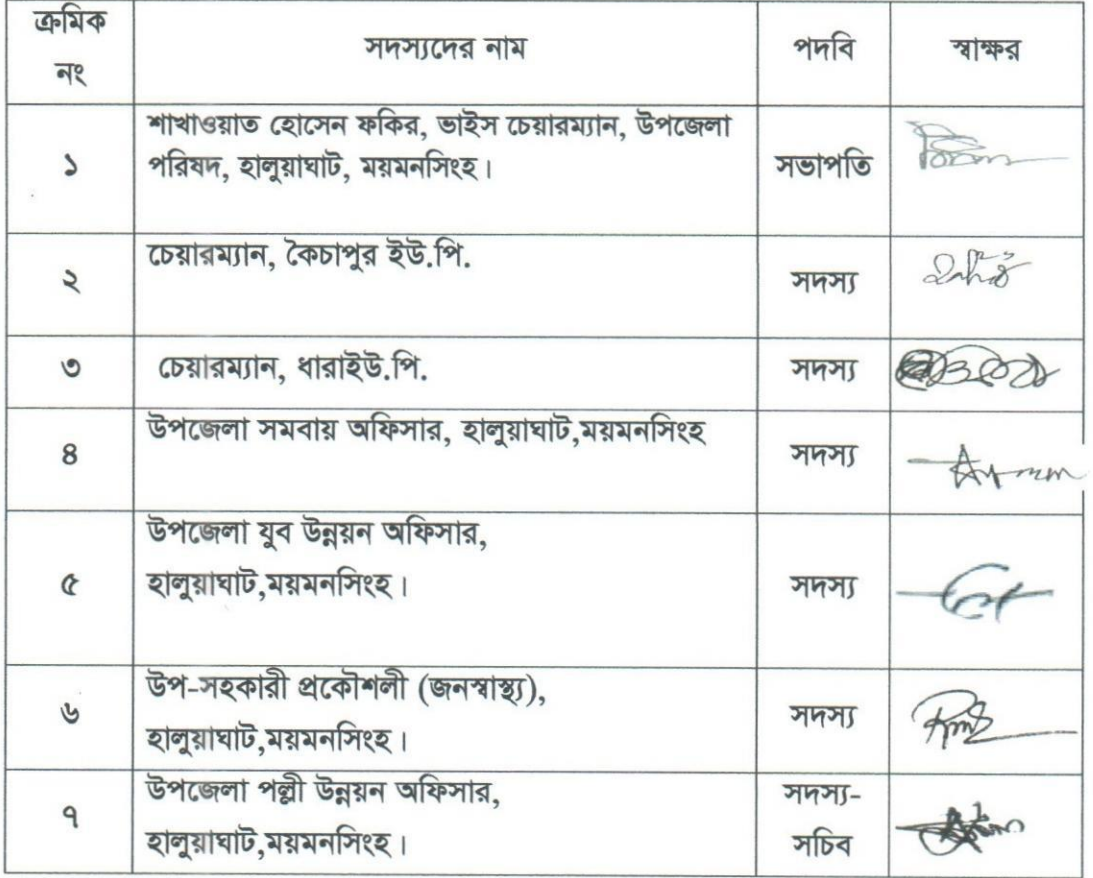 ক্রমিক নং সদস্যদের নাম পদবি স্বাক্ষর
১ শাখাওয়াত হোসেন ফকির, ভাইস চেয়ারম্যান, উপজেলা
পরিষদ, হালুয়াঘাট, ময়মনসিংহ। সভাপতি
২ চেয়ারম্যান, কৈচাপুর ইউ.পি. সদস্য
৩ চেয়ারম্যান, ধারাইউ.পি. সদস্য
৪ উপজেলা সমবায় অফিসার, হালুয়াঘাট,ময়মনসিংহ সদস্য
৫ উপজেলা যুব উন্নয়ন অফিসার,
হালুয়াঘাট,ময়মনসিংহ। সদস্য
৬ উপ-সহকারী প্রকৌশলী (জনস্বাস্থ্য),
হালুয়াঘাট,ময়মনসিংহ। সদস্য
৭ উপজেলা পল্লী উন্নয়ন অফিসার,
হালুয়াঘাট,ময়মনসিংহ। সদস্য-
সচিব